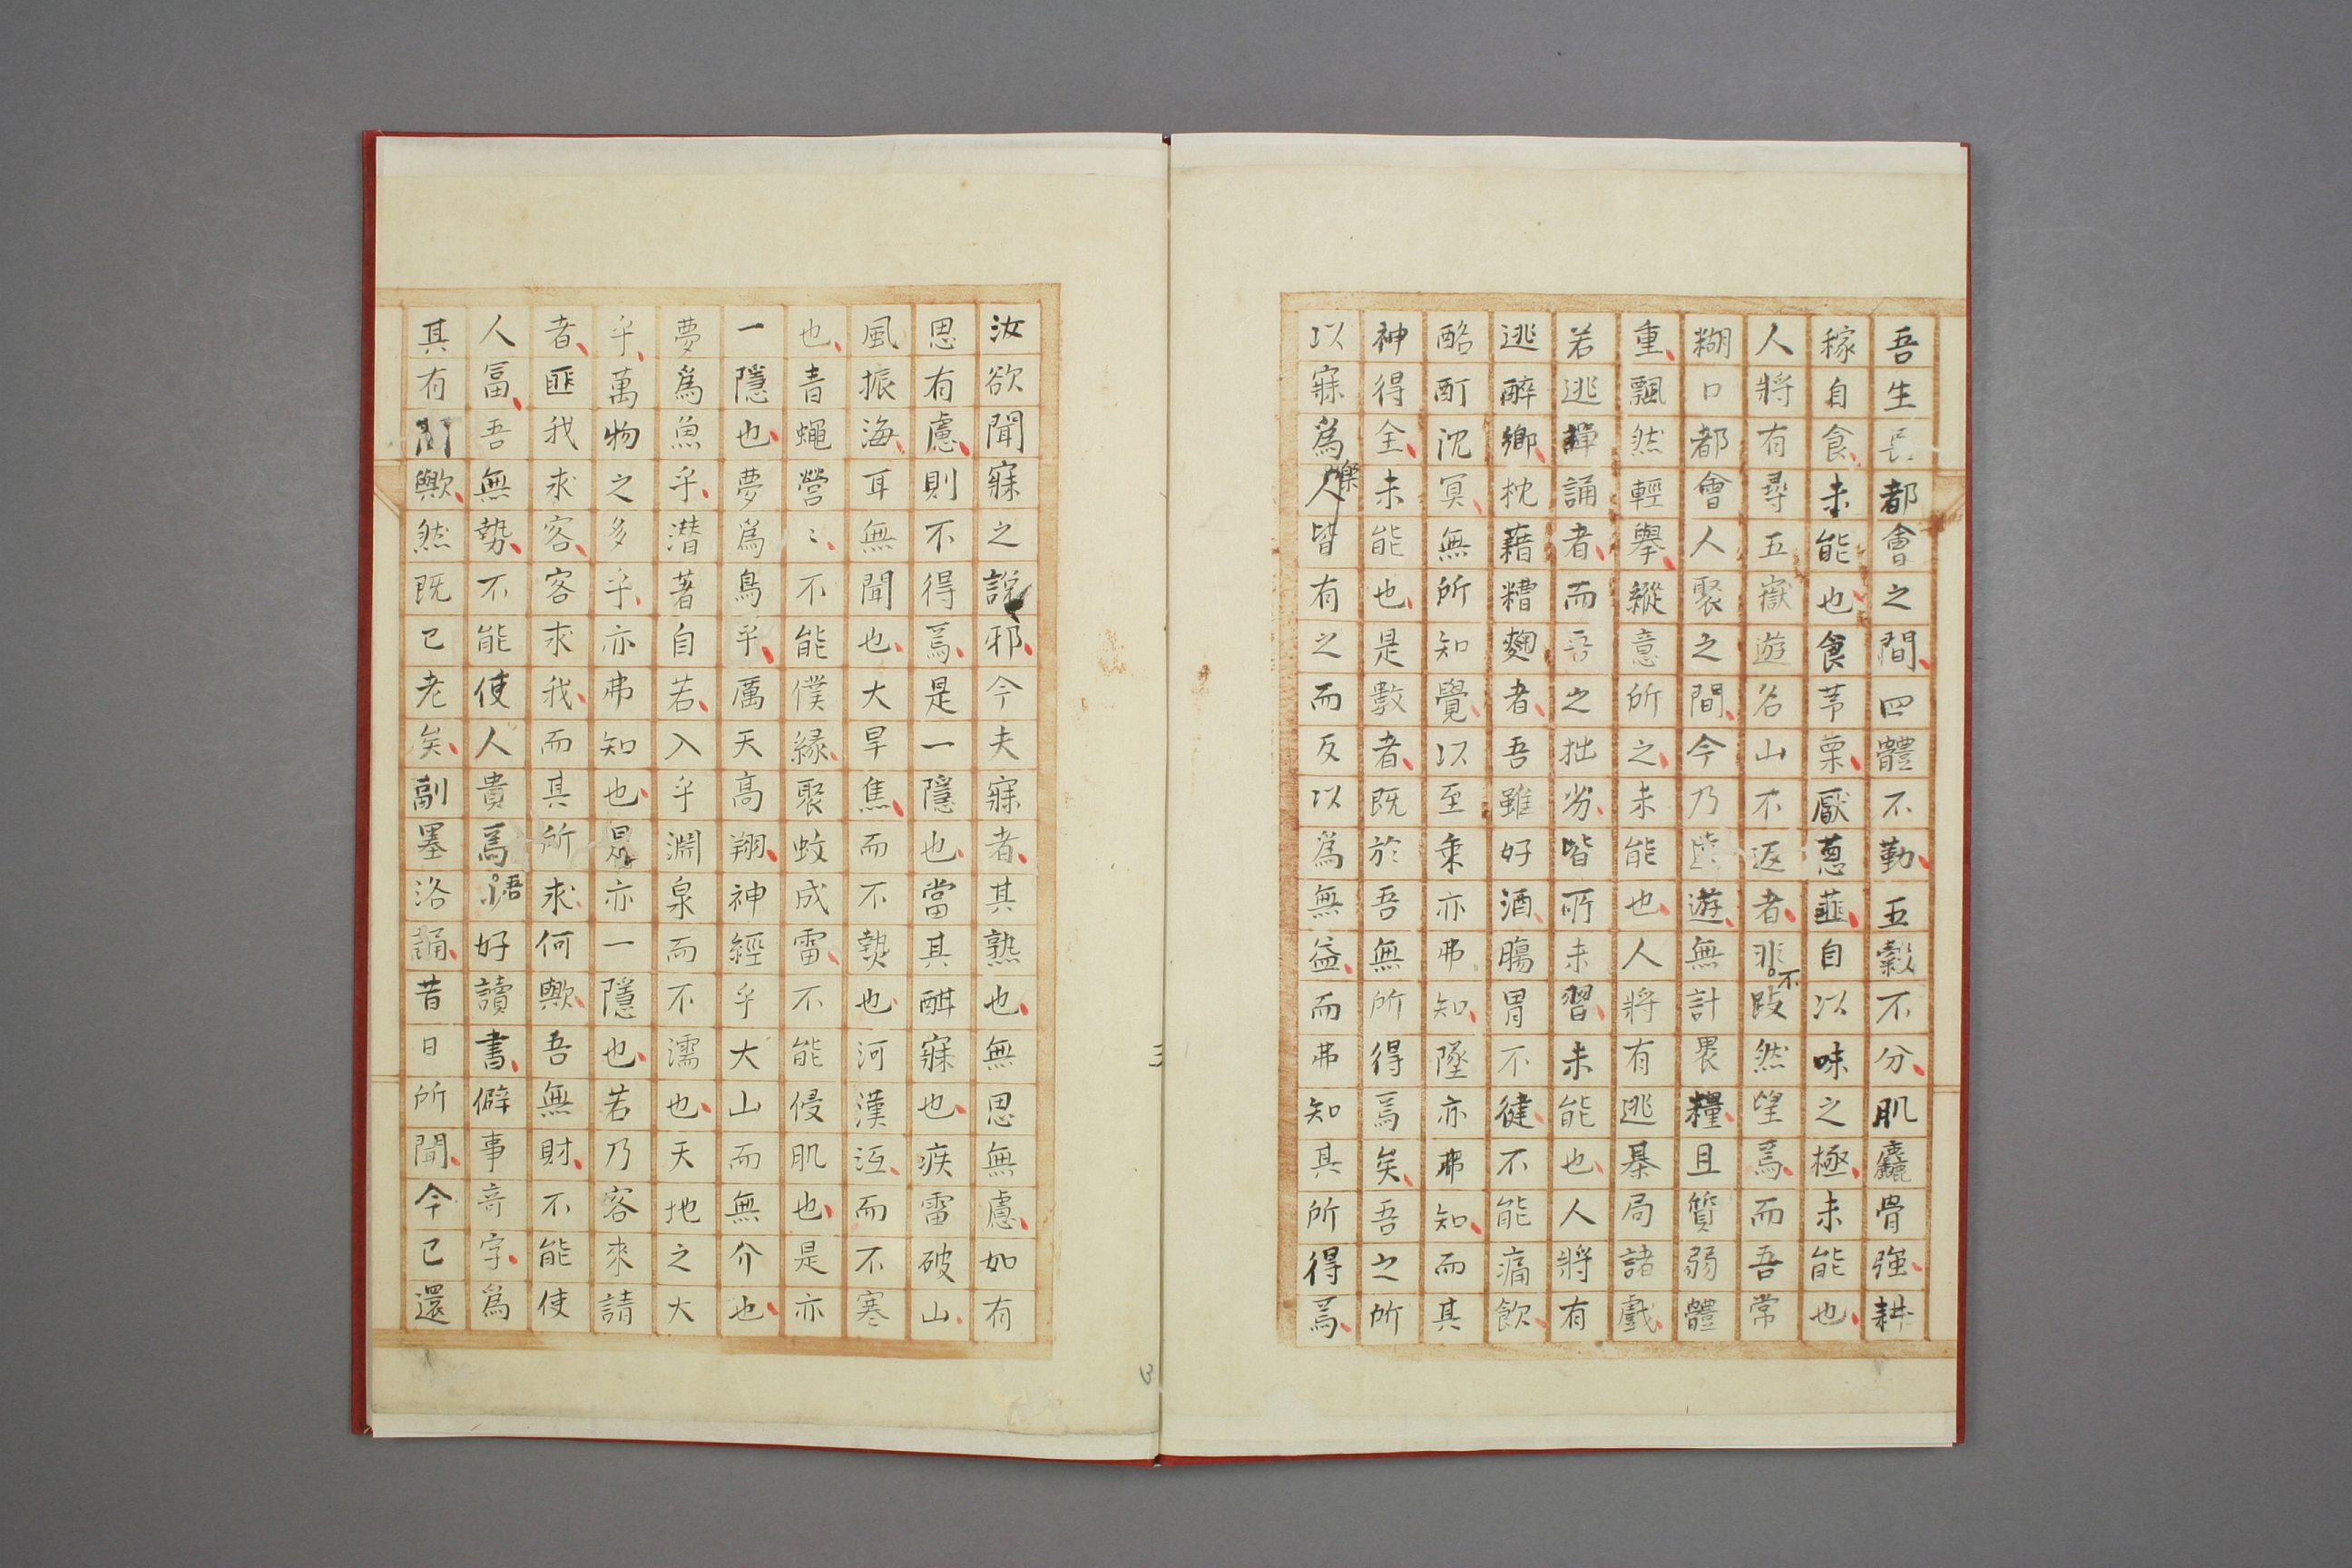 吾生長都會之間四體不勤五穀不分肌麤骨強耕
稼自食未能也食芧栗厭蔥韮自以味之極未能也
人將有尋五嶽遊名山不返者非不跂然望焉而吾常
糊口都會人聚之間今乃遊無計畏糧且質弱體
重飄然輕擧縱意所之未能也人將有逃棊局諸戲
若逃禪誦者而吾之拙劣皆所未習未能也人將有
逃醉鄉枕藉糟麴者吾雖好酒腸胃不健不能痛飲
酩酊沈冥無所知覺以至乘亦弗知墜亦弗知而其
神得全未能也是數者既於吾無所得焉矣吾之所
以寐為樂人皆有之而反以為無益而弗知其所得焉
汝欲聞寐之說邪今夫寐者其熟也無思無慮如有
思有慮則不得焉是一隱也當其酣寐也疾雷破山
風振海耳無聞也大旱焦而不熱也河漢沍而不寒
也青蠅營〻不能僕緣聚蚊成雷不能侵肌也是亦
一隱也夢為鳥乎厲天高翔神經乎大山而無介也
夢為魚乎潛著自若入乎淵泉而不濡也天地之大
乎萬物之多乎亦弗知也是亦一隱也若乃客來請
者匪我求客客求我而其所求何歟吾無財不能使
人富吾無勢不能使人貴焉吾好讀書僻事奇字為
其有聞歟然既已老矣副墨洛誦昔日所聞今已還